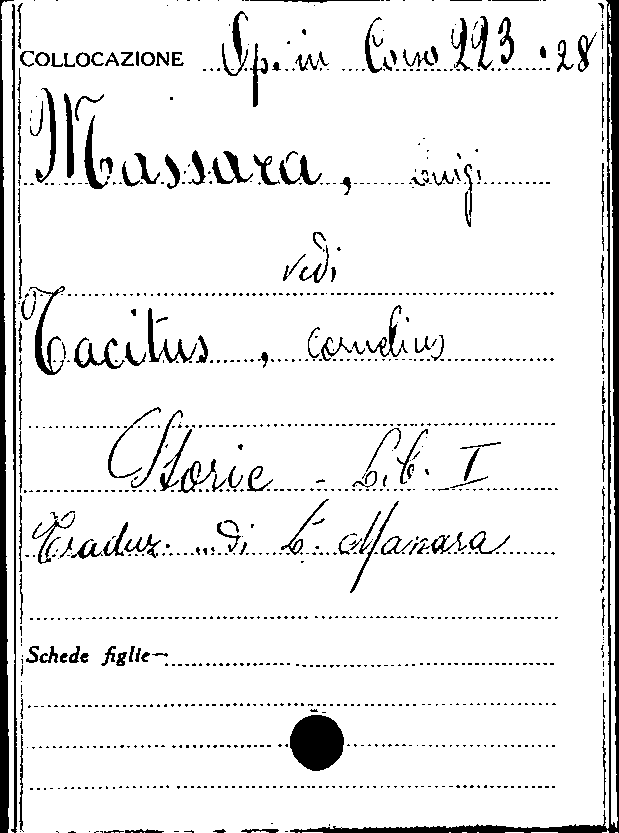 COLLOCAZIONE Op. in Corso 223 .28
Massara, Luigi
vedi
Tacitus, Cornelius
Storie - Lib. I
Traduz. ... di L. Manara
Schede figlie—